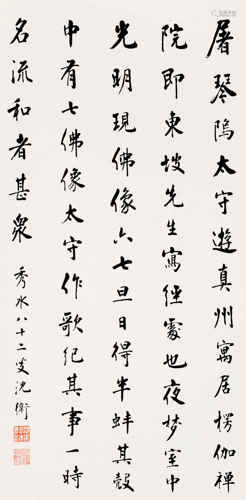 屠琴隖太守遊真州寓居楞伽禅
院即東坡先生寫經處也夜梦室中
光明現佛像六七旦日得半蚌其殼
中有七佛像太守作歌紀其事一時
名流和者甚衆
秀水八十二叟沈衛